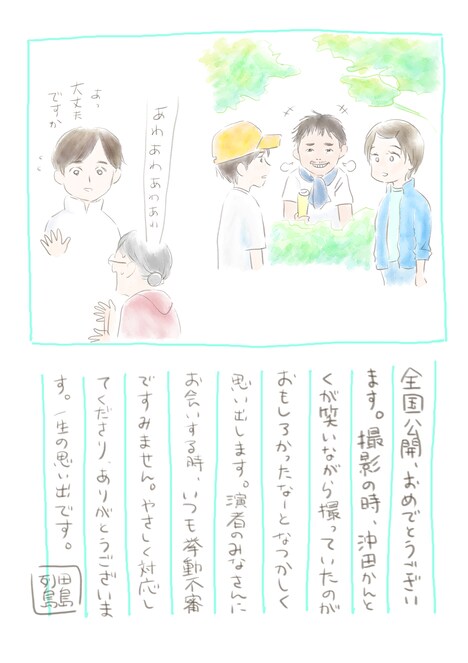 あわあわあわあわ
あっ
大丈夫
ですか
全国公開、おめでとうござい
ます。撮影の時、沖田かんと
くが笑いながら撮っていたのが
おもしろかったなーとなつかしく
思い出します。演者のみなさんに
お会いする時、いつも挙動不審
ですみません。やさしく対応し
てくださり、ありがとうございま
す。一生の思い出です。
田島
列島